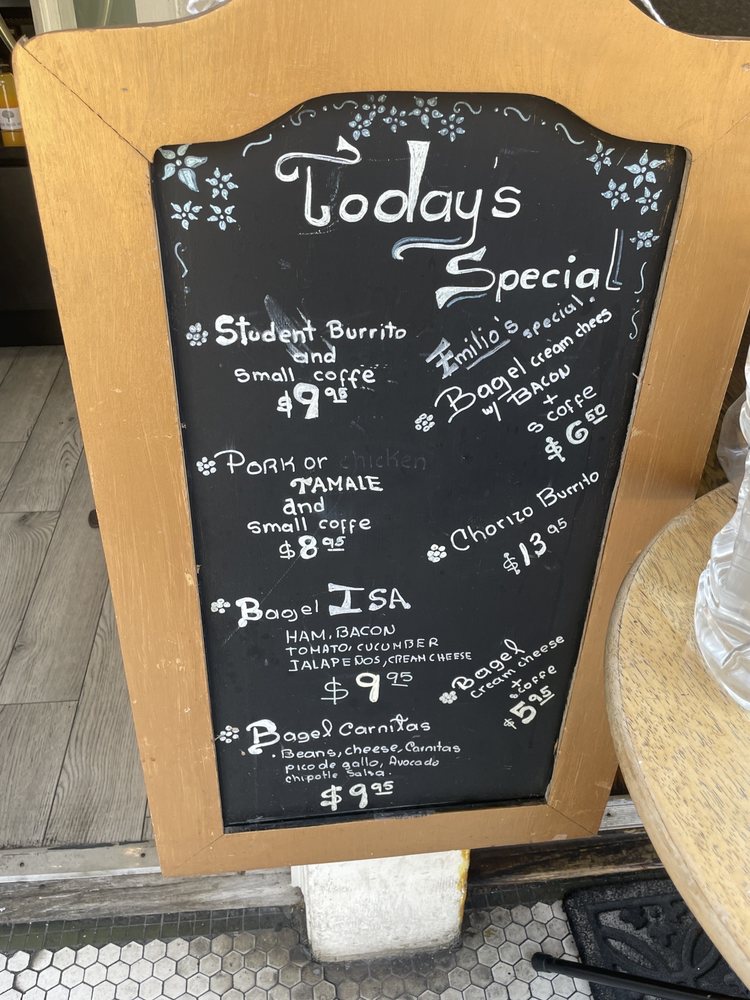 Today's
Special
Student Burrito
and
small coffe
$9.95
Pork or chicken
TAMALE
and
small coffe
$8.95
Bagel ISA
HAM, BACON
TOMATO, CUCUMBER
JALAPEÑOS, CREAM CHEESE
$9.95
Bagel Carnitas
. Beans, cheese, Carnitas
pico de gallo, Avocado
chipotle salsa.
$9.95
Emilio's special.
Bagel cream chees
w/ BACON
+
s coffe
$6.50
Chorizo Burrito
$13.95
Bagel
cream cheese
s + coffe
$5.95